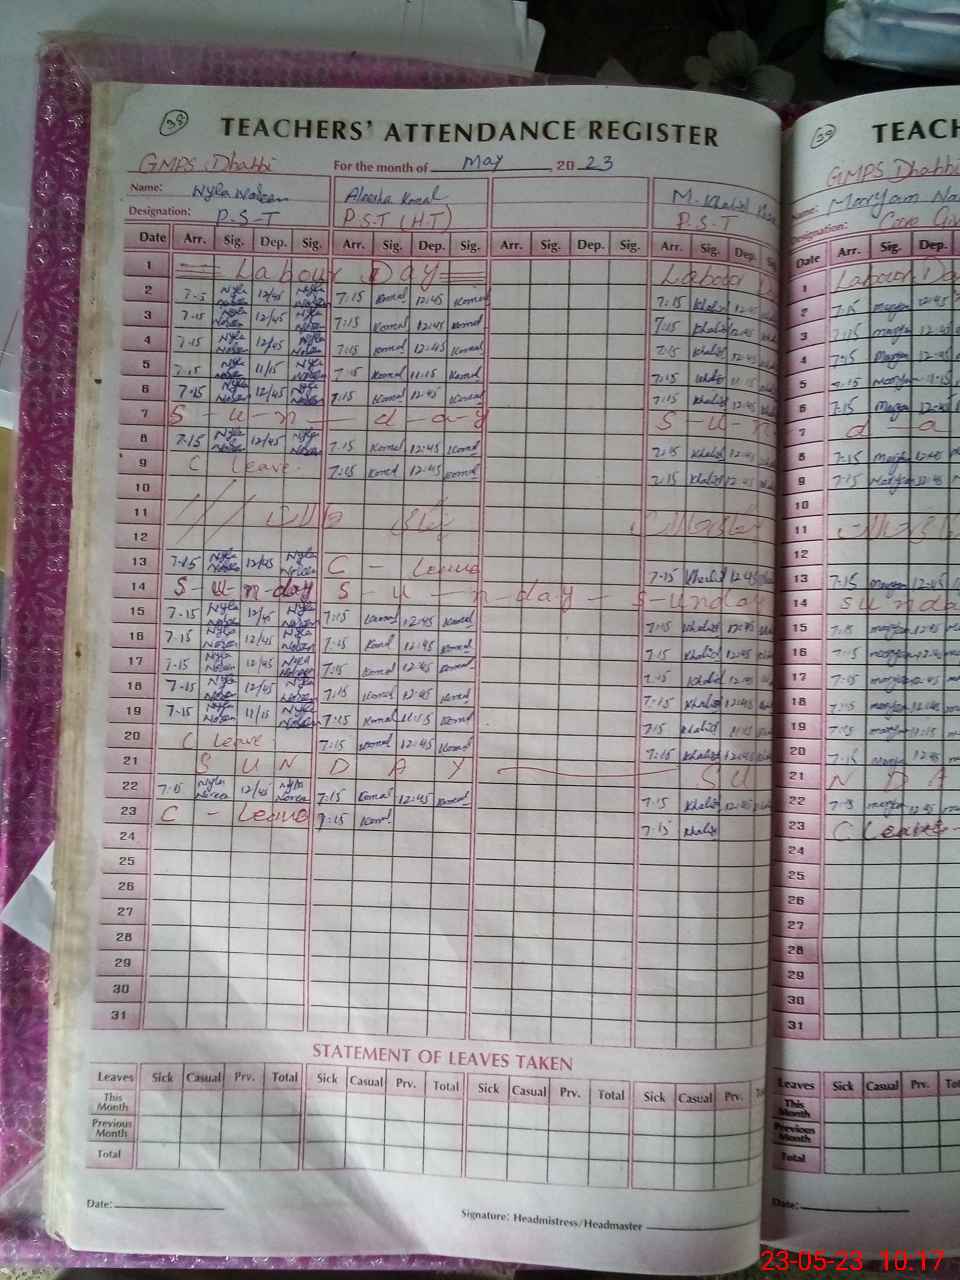 38 TEACHERS' ATTENDANCE REGISTER
GMPS Dhabbi For the month of May 20 23
Name: Nyla Noreen Aleesha Komal M. Khalid
Designation: P.S.T P.S.T (H.T) P.S.T
Date Arr. Sig. Dep. Sig. Arr. Sig. Dep. Sig. Arr. Sig. Dep. Sig. Arr. Sig. Dep.
1 Labour Day Labour
2 7-15 Nyla Noreen 12/45 Nyla Noreen 7:15 Komal 12:45 Komal 7:15 Khalid 12:45
3 7-15 Nyla Noreen 12/45 Nyla Noreen 7:15 Komal 12:45 Komal 7:15 Khalid 12:45
4 7-15 Nyla Noreen 12/45 Nyla Noreen 7:15 Komal 12:45 Komal 7:15 Khalid 12:45
5 7-15 Nyla Noreen 11/15 Nyla Noreen 7:15 Komal 11:15 Komal 7:15 Khalid 11:15
6 7-15 Nyla Noreen 12/45 Nyla Noreen 7:15 Komal 12:45 Komal 7:15 Khalid 12:45
7 S - u - n - d - a - y S - u - n
8 7-15 Nyla Noreen 12/45 Nyla Noreen 7:15 Komal 12:45 Komal 7:15 Khalid 12:45
9 C Leave 7:15 Komal 12:45 Komal 7:15 Khalid 12:45
10
11
12
13 7-15 Nyla Noreen 12/45 Nyla Noreen C - Leave 7-15 Khalid 12:45
14 S - u - n - day S - u - n - day - Sunday
15 7-15 Nyla Noreen 12/45 Nyla Noreen 7:15 Komal 12:45 Komal 7:15 Khalid 12:45
16 7-15 Nyla Noreen 12/45 Nyla Noreen 7:15 Komal 12:45 Komal 7:15 Khalid 12:45
17 7-15 Nyla Noreen 12/45 Nyla Noreen 7:15 Komal 12:45 Komal 7:15 Khalid 12:45
18 7-15 Nyla Noreen 12/45 Nyla Noreen 7:15 Komal 12:45 Komal 7:15 Khalid 12:45
19 7-15 Nyla Noreen 11/15 Nyla Noreen 7:15 Komal 11:15 Komal 7:15 Khalid 11:15
20 C Leave 7:15 Komal 12:45 Komal 7:15 Khalid 12:45
21 S U N D A Y S U
22 7-15 Nyla Noreen 12/45 Nyla Noreen 7:15 Komal 12:45 Komal 7:15 Khalid 12:45
23 C - Leave 7:15 Komal 7:15 Khalid
24
25
26
27
28
29
30
31
STATEMENT OF LEAVES TAKEN
Leaves Sick Casual Prv. Total Sick Casual Prv. Total Sick Casual Prv. Total Sick Casual Prv.
This Month
Previous Month
Total
Date:
Signature: Headmistress/Headmaster
39 TEACH
GMPS Dhabbi
Name: Maryam
Designation:
Date Arr. Sig. Dep.
1 Labour Da
2 7:15 Maryam 12:45
3 7:15 Maryam 12:45
4 7:15 Maryam 12:45
5 7:15 Maryam 11:15
6 7:15 Maryam 12:45
7 d - a
8 7:15 Maryam 12:45
9 7:15 Maryam 12:45
10
11
12
13 7:15 Maryam 12:45
14 Sunda
15 7:15 Maryam 12:45
16 7:15 Maryam 12:45
17 7:15 Maryam 12:45
18 7:15 Maryam 12:45
19 7:15 Maryam 11:15
20 7:15 Maryam 12:45
21 N D A
22 7:15 Maryam 12:45
23 C Leave -
24
25
26
27
28
29
30
31
Leaves Sick Casual Prv.
This Month
Previous Month
Total
Date:
23-05-23 10.17